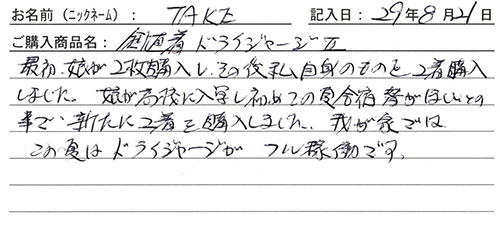 お名前（ニックネーム）： TAKE 記入日：29年8月21日
ご購入商品名： 創値者 ドライジャージⅡ
最初、娘が2枚購入し、その後私自身のものを2着購入
しました。 娘が高校に入学し初めての夏合宿 着がほしいとの
事で、新たに2着を購入しました。 我が家では
この夏はドライジャージが フル稼働です。